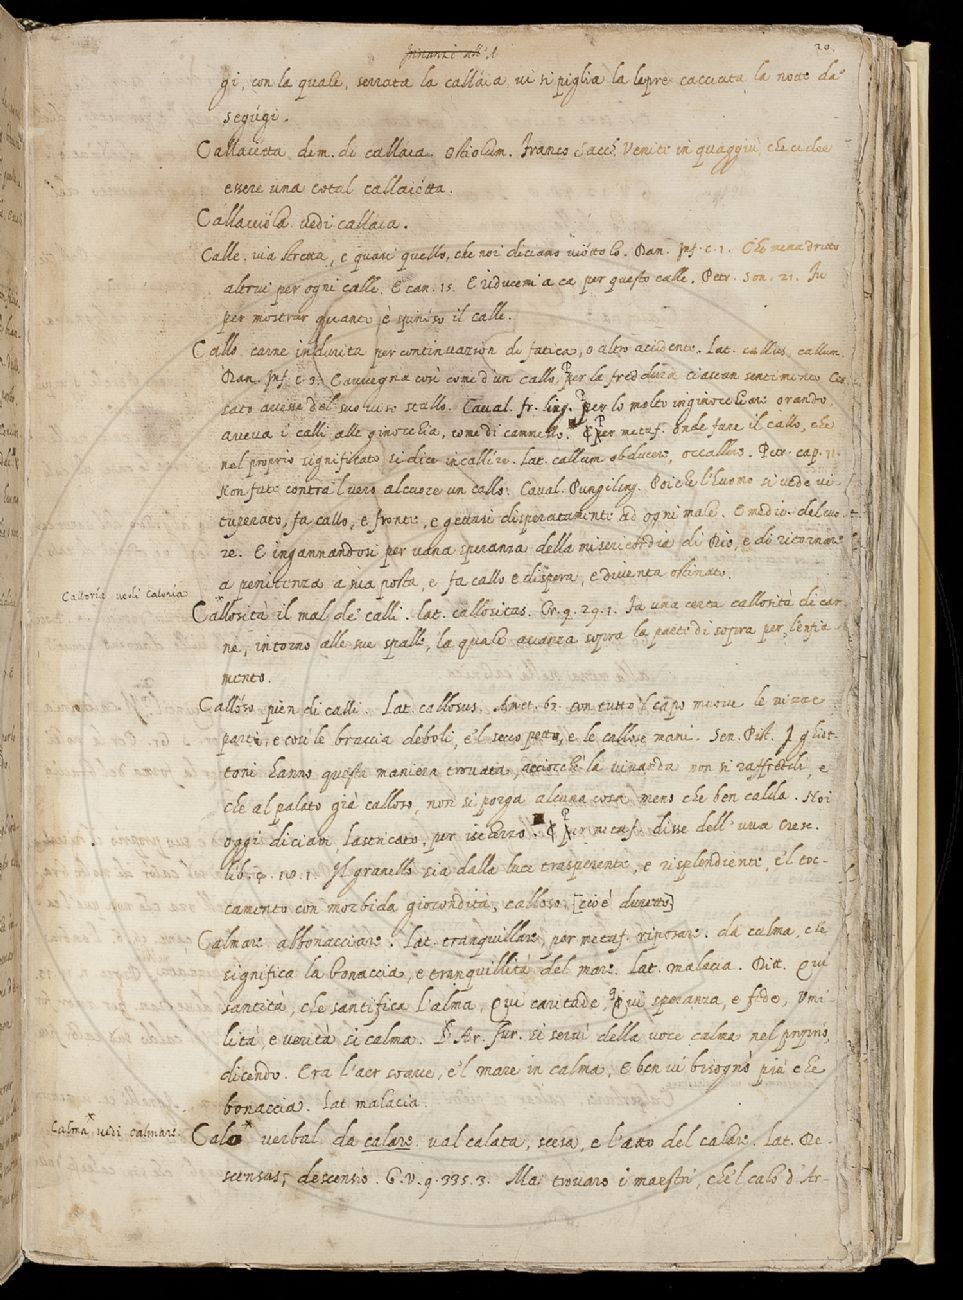 20
gi, con la quale, serrata la callaia, vi si piglia la lepre cacciata la notte da
segúgi.
Callaietta dim. di callaia. Ostiolum. Franco Sacc. Venite in quaggiù, che ci dee
essere una cotal callaietta.
Callaiuola vedi callaia.
Calle. via stretta, e quasi quello, che noi diciamo viòttolo. Dan. Inf. c. 1. Che mena dritto
altrui per ogni calle. E can. 15. E riducemi a ca per questo calle. Petr. Son. 21. Ju
per mostrar quanto è spinoso il calle.
Callo. carne indurita per continuazion di fatica, o altro accidente. Lat. callus, callum.
Dan. Inf. c. 9. E avvegna così come d'un callo, Per la freddura ciascun sentimento Ces-
sato avesse del suo viso stallo. Caval. fr. ling. Per lo molto inginocchiare orando,
aveva i calli alle ginocchia, come di cammello. ¶ Per metaf. onde fare il callo, che
nel proprio significato si dice incallire. Lat. callum obducere, occallere. Petr. cap. 11.
Non fate contra 'l vero al cuore un callo. Caval. Pungiling. Poichè l'huomo si vede vi-
tuperato, fa callo, e fronte, e gettasi disperatamente ad ogni male. E medic. del cuo-
re. E ingannandosi per vana speranza della misericordia di Dio, e di ritornare
a penitenza a sua posta, e fa callo e dispera, e diventa ostinato.
Calloria vedi caloria
Callosità il mal de' calli. Lat. callositas. Cr. 9. 29. 1. Fa una certa callosità di car-
ne, intorno alle sue spalle, la quale avanza sopra la parte di sopra per l'enfia-
mento.
Calloso pien di calli. Lat. callosus. Amet. 62. con tutto 'l capo muove le mizze
parti, e così le braccia deboli, e 'l secco petto, e le callose mani. Sen. Pist. I ghiot-
toni hanno questa maniera trovata, acciocchè la vivanda non si raffreddi, e
che al palato già calloso, non si porga alcuna cosa meno che ben calda. Noi
oggi diciam lastricato, per ischerzo. ¶ Per metaf. disse dell'uva Cresc.
lib. 4. 10. 1. Il granello sia dalla luce trasparente, e risplendiente, e 'l toc-
camento con morbida giocondità, calloso [cioè duretto]
Calmare abbonacciare. Lat. tranquillare, per metaf. riposare. da calma, che
significa la bonaccia, e tranquillità del mare. Lat. malacia. Ditt. Qui
santità, che santifica l'alma, Qui caritade, Qui speranza, e fede, Umi-
lità, e verità si calma. L'Ar. Fur. si servì della voce calma nel proprio,
dicendo. Era l'aer soave, e 'l mare in calma, E ben vi bisognò più che
bonaccia. Lat. malacia.
Calma vedi calmare.
Calo verbal. da calare. val calata, scesa, e l'atto del calare. Lat. De-
scensus, descensio. G. V. 9. 335. 3. Mai trovaro i maestri, che 'l calo d'Ar-